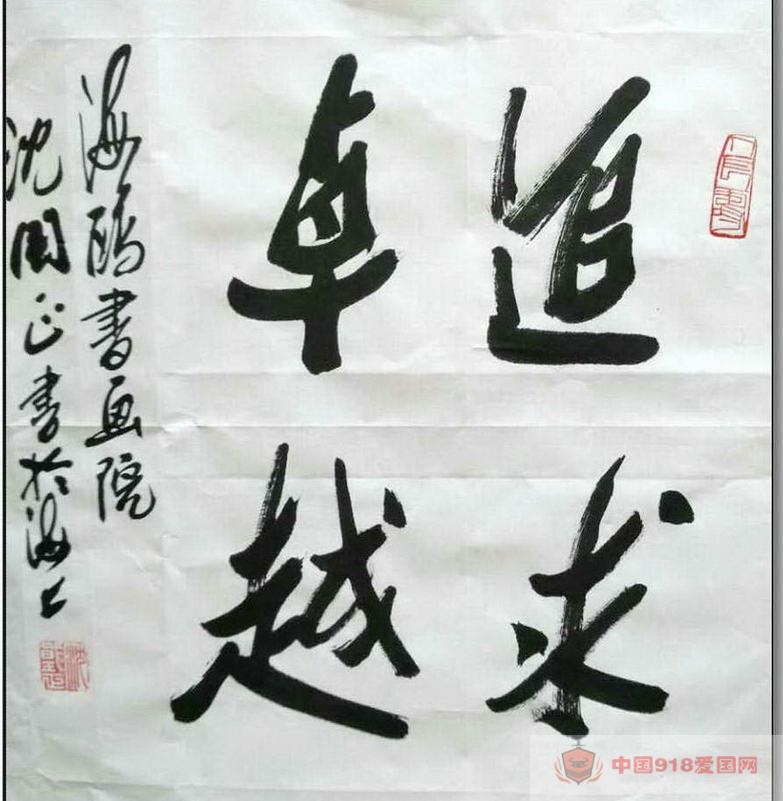 追求
卓越
海鸥书画院
沈国正书於海上
中国918爱国网